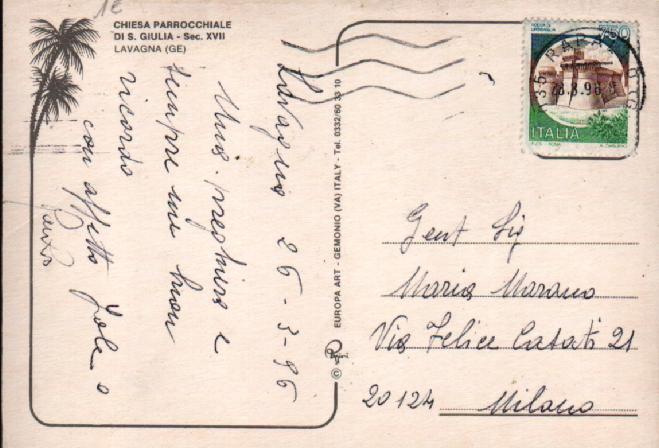 1€
CHIESA PARROCCHIALE
DI S. GIULIA - Sec. XVII
LAVAGNA (GE)
Lavagna 26-3-96
Una preghiera e
sempre un buon
ricordo
con affetto Jole e
EUROPA ART - GEMONIO (VA) ITALY - Tel. 0332/60 33 10
750
RAPALLO
28.3.96
ITALIA
Gent Sig
Maria Marano
Via Felice Casati 21
20124 Milano